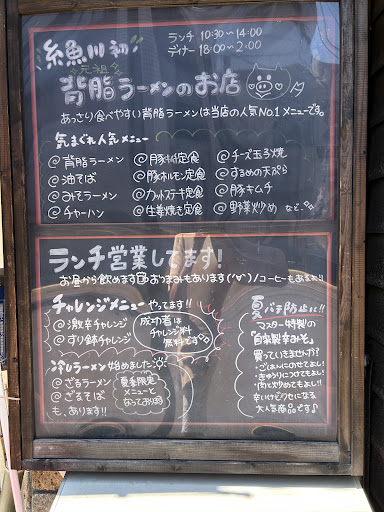 ランチ 10:30～14:00
ディナー 18:00～2:00
糸魚川初!
元祖
背脂ラーメンのお店
あっさり食べやすい背脂ラーメンは当店の人気No.1メニューです。
気まぐれ人気メニュー
@背脂ラーメン
@油そば
@みそラーメン
@チャーハン
@豚ホルモン定食
@カットステーキ定食
@生姜焼き定食
@チーズ玉子焼
@するめの天ぷら
@豚キムチ
@野菜炒め など、
ランチ営業してます!
お昼から飲めます おつまみもあります('∀`)ノコーヒーもあるよ!!
チャレンジメニュー やってます!!
@激辛チャレンジ
@すり鉢チャレンジ
成功者は
チャレンジ料
無料です
冷しラーメン 始めました
@ざるラーメン
@ざるそば
も、あります!!
夏季限定
メニューと
なっております
夏バテ防止に!!
マスター特製の
"自家製辛みそ"
買っていきませんか??
・ごはんにのせてよし!
・きゅうりにつけてもよし!
・肉と炒めてもよし!!
辛いけどクセになる
大人気商品です♪